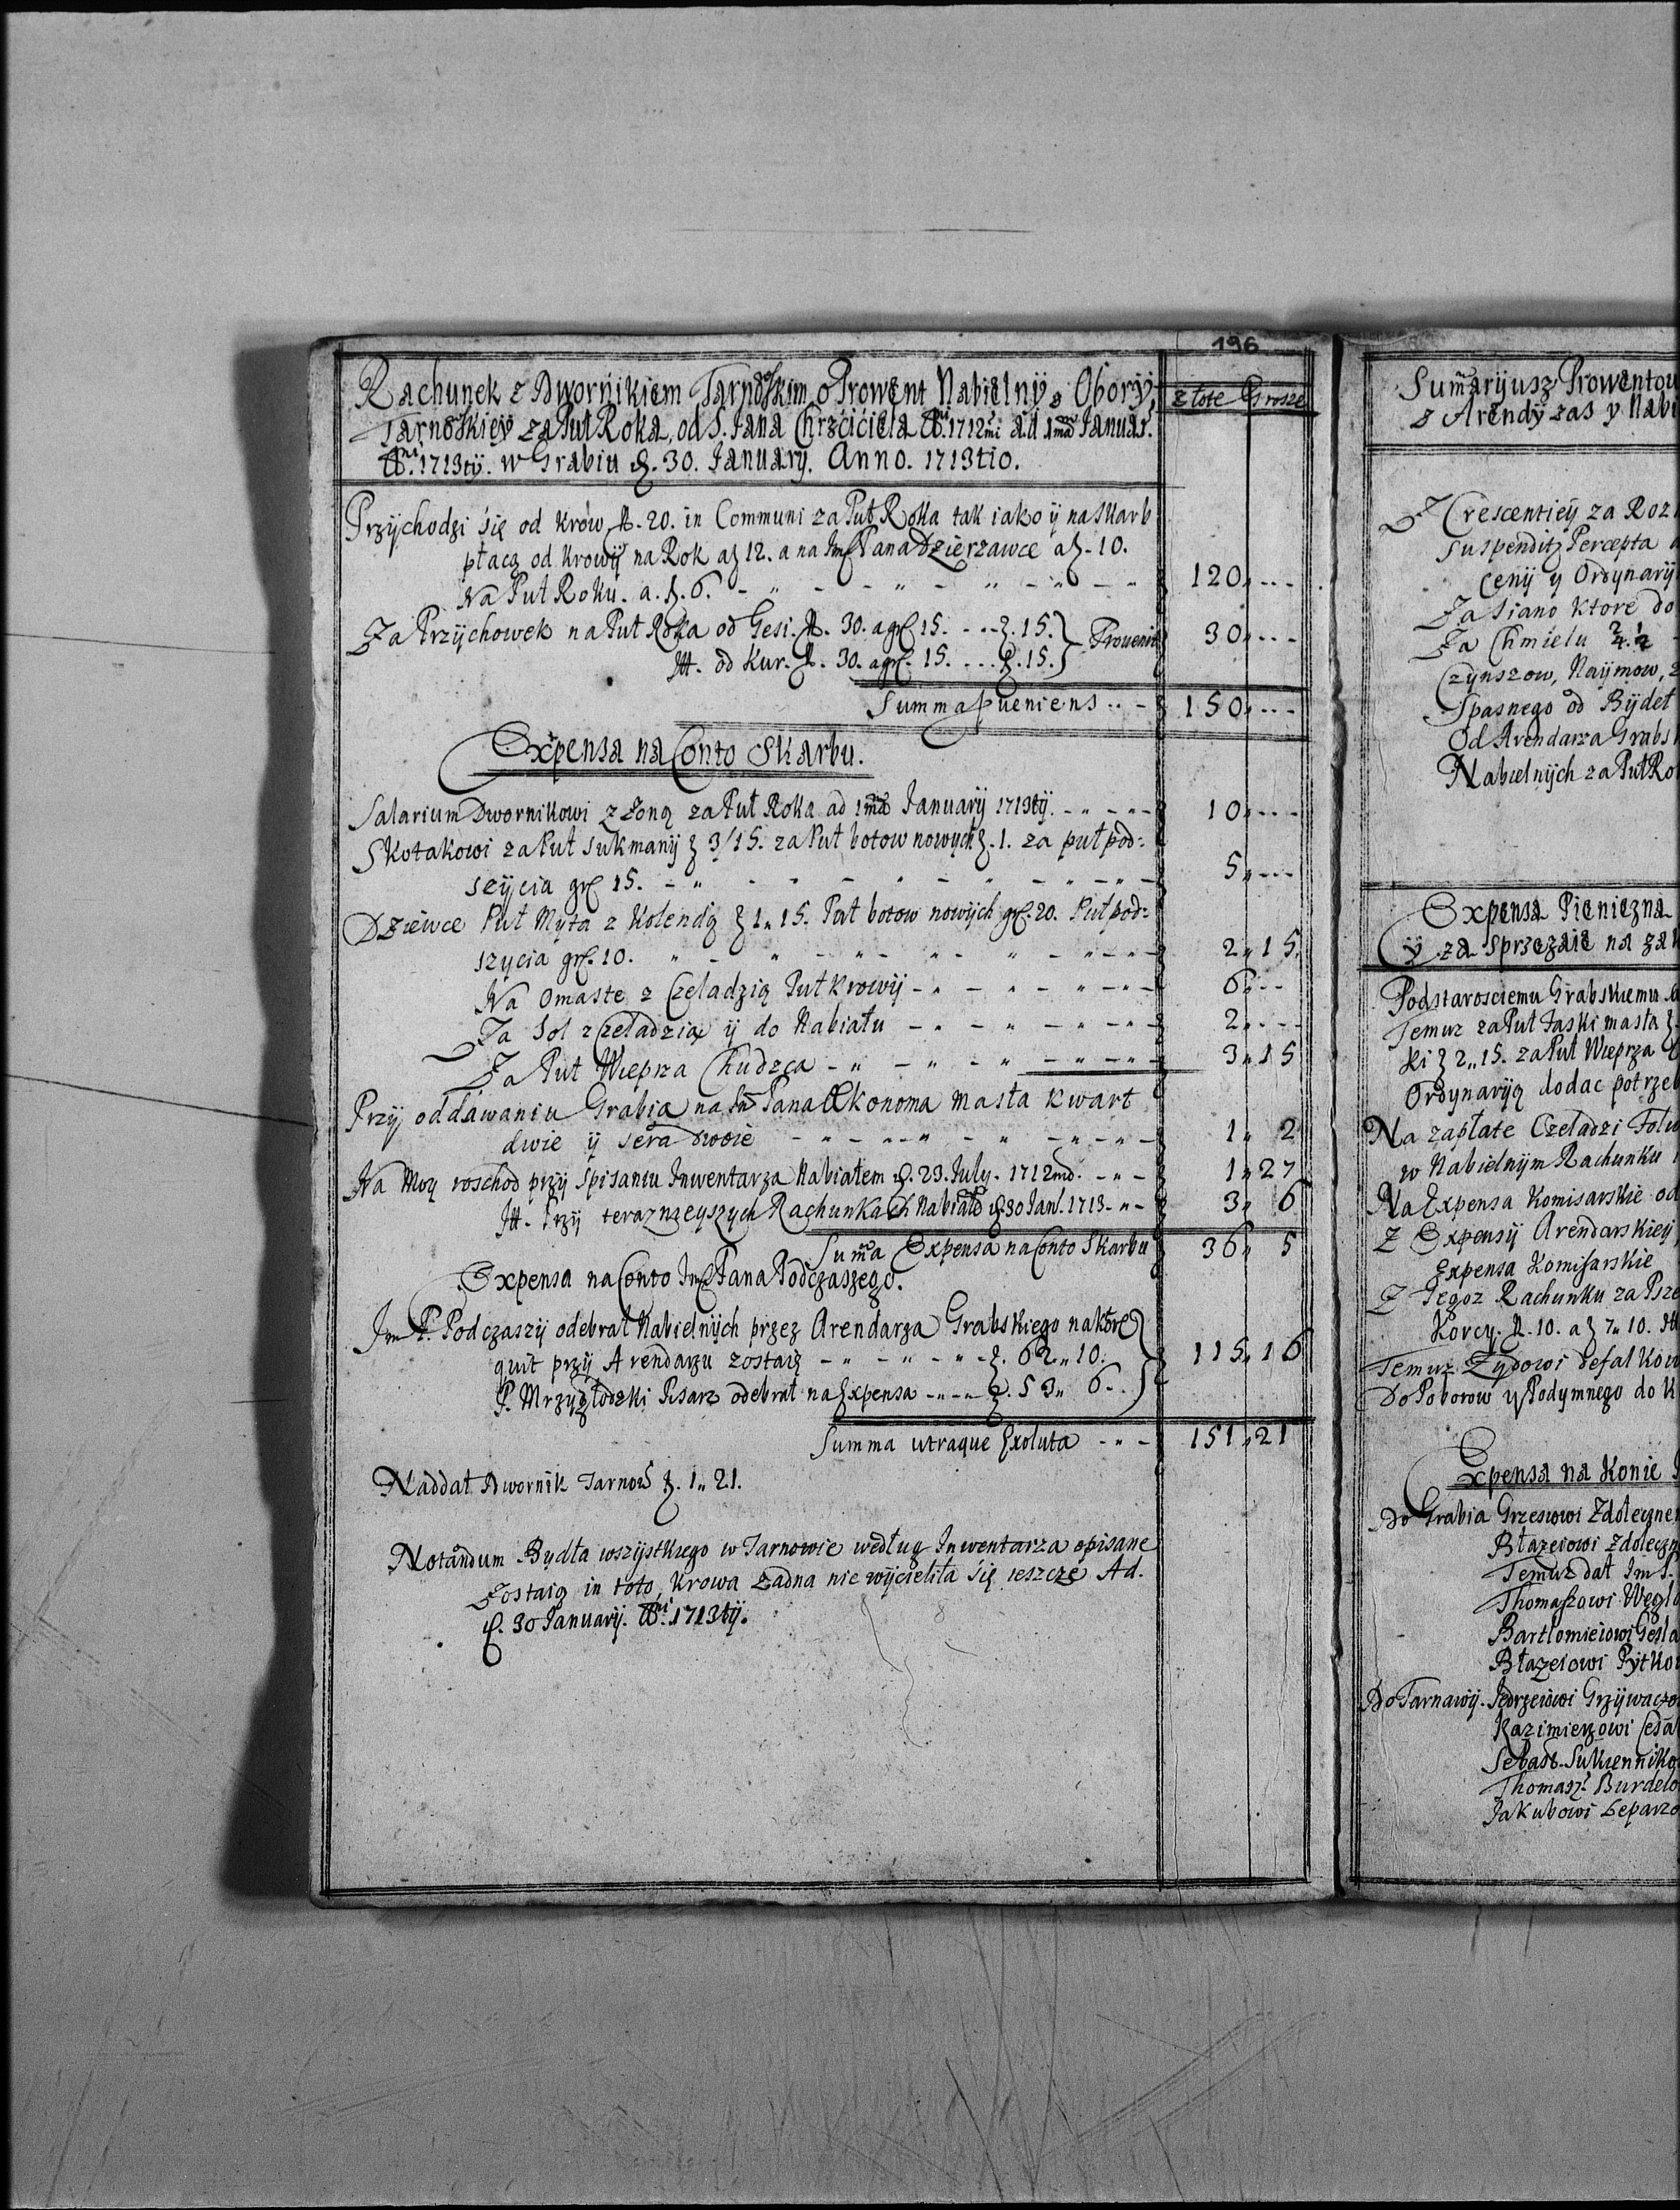 196
Rachunek z Dwornikiem Tarnoskim o Prowent Nabielny z Obory złote Grosze
Tarnoskiey za Puł Roka, od S. Jana Chrzciciela Ani. 1712mi ad 1ma Januar.
Ani. 1713ty. w Grabiu d. 30. January. Anno. 1713tio.
Przychodzi się od krów N. 20. in Communi za Puł Roka tak iako y na Skarb
płacą od krowy na Rok a zł 12. a na Jmć Pana Dzierzawce a zł. 10.
Na Puł Roku. a. zł. 6. 120 „ ---
Za Przychowek na Puł Roka od Gesi. N. 30. a gr 15. zł. 15. } Prouenit 30 „ ---
Itt. od Kur. N. 30. a gr. 15. ... zł. 15. }
Summa pueniens 150 „ ---
Expensa na Conto Skarbu.
Salarium Dwornikowi z Zoną za Puł Roka ad 1ma January 1713ty. 10 „ ---
Skotakowi za Puł Sukmany zł 3/15. za Puł botow nowych zł. 1. za puł pod:
szycia gr 15. 5 „ ---
Dziewce Puł Myta z Kolendą zł 1 „ 15. Puł botow nowych gr. 20. Puł pod:
szycia gr. 10. 2 „ 15
Na omaste z Czeladzią Puł krowy 6 „ --
Za Sol z Czeladzią y do Nabiału 2 „ ---
Za Puł Wieprza Chudzca 3 „ 15
Przy oddawaniu Grabia na Jmć Pana Œkonoma masła kwart
dwie y sera dwoie 1 „ 2
Na Moy roschod przy Spisaniu Inwentarza Nabiałem d. 23. July. 1712md. 1 „ 27
Itt. Przy teraznieyszych Rachunkach Nabiału d. 30 Jan. 1713 3 „ 6
Suma Expensa na Conto Skarbu 36 „ 5
Expensa na Conto Jmć Pana Podczaszego.
Jm P. Podczaszy odebrał Nabielnych przez Arendarza Grabskiego na ktore
quit przy Arendarzu zostaią zł. 62 „ 10. } 115 „ 16
P. Mrzygłodzki Pisarz odebrał na Expensa zł. 53 „ 6 }
Summa utraque Exoluta 151 „ 21
Naddał Dwornik Tarnos zł. 1 „ 21.
Notandum Bydła wszystkiego w Tarnowie według Inwentarza opisane
Zostaią in toto, krowa zadna nie wycieliła się ieszcze Ad.
d. 30 January. Ani. 1713ty.
Sumaryusz Prowentow
z Arendy zas y Nabi
Z Crescentiey za Roz
Suspendit Percepta
Ceny y Ordynary
Za Siano ktore do
Za Chmielu
Czynszow, Naymow, z
Spasnego od Bydeł
Od Arendarza Grabs
Nabielnych za Puł Ro
Expensa Pieniezna
y za Sprzezaie na zak
Podstarosciemu Grabskiemu
Temuz za Puł faski masła zł
ki zł 2 „ 15. za Puł Wieprza
Ordynaryą dodac potrzeb
Na zapłate Czeladzi Folw
w Nabielnym Rachunku
Na Expensa Komisarskie od
Z Expensy Arendarskiey
Expensa Komisarskie
Z Tegoz Rachunku za Psze
Korcy. N. 10. a zł 7 „ 10. Itt
Temuz Zydowi defalkow
Do Poborow y Podymnego do K
Expensa na Konie
Do Grabia Grzesiowi Zdolecne
Błazeiowi Zdolecz
Temuz dał Jm S.
Thomaszowi Weglo
Bartlomieiowi Gesla
Błazeiowi Pytko
Do Tarnawy. Jedrzeiowi Grzywaczo
Kazimierzowi
Sebast. Sukiennikow
Thomasz. Burdelo
Jakubowi Leparzo